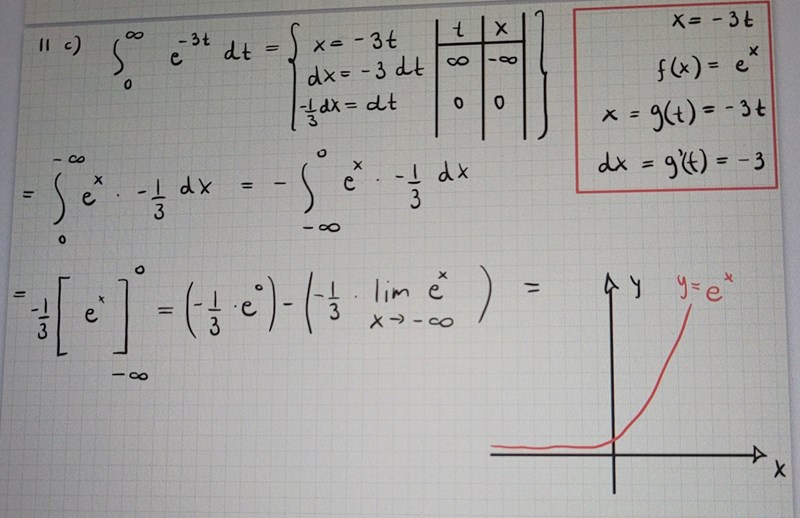 11 c) ∫₀^∞ e^{-3t} dt = { x = -3t
dx = -3 dt
-1/3 dx = dt
t | x
∞ | -∞
0 | 0 }
x = -3t
f(x) = e^x
x = g(t) = -3t
dx = g'(t) = -3
= ∫₀^{-∞} e^x · -1/3 dx = - ∫_{-∞}^0 e^x · -1/3 dx
= -1/3 [ e^x ]_{-∞}^0 = (-1/3 · e^0) - (-1/3 · lim_{x→-∞} e^x) =
y
y = e^x
x